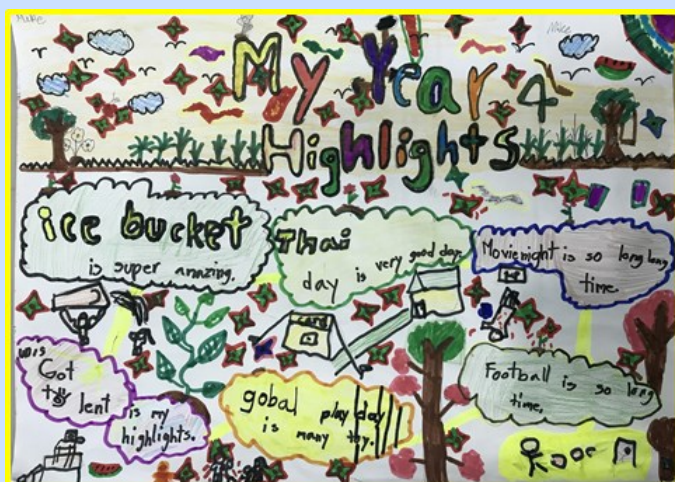 Mike
Mike
My Year 4
Highlights
ice bucket
is super amazing.
Thai
day is very good day.
Movie night is so long long
time.
Got
lent
is my
highlights.
gobal play day
is many toy.
Football is so long
time.